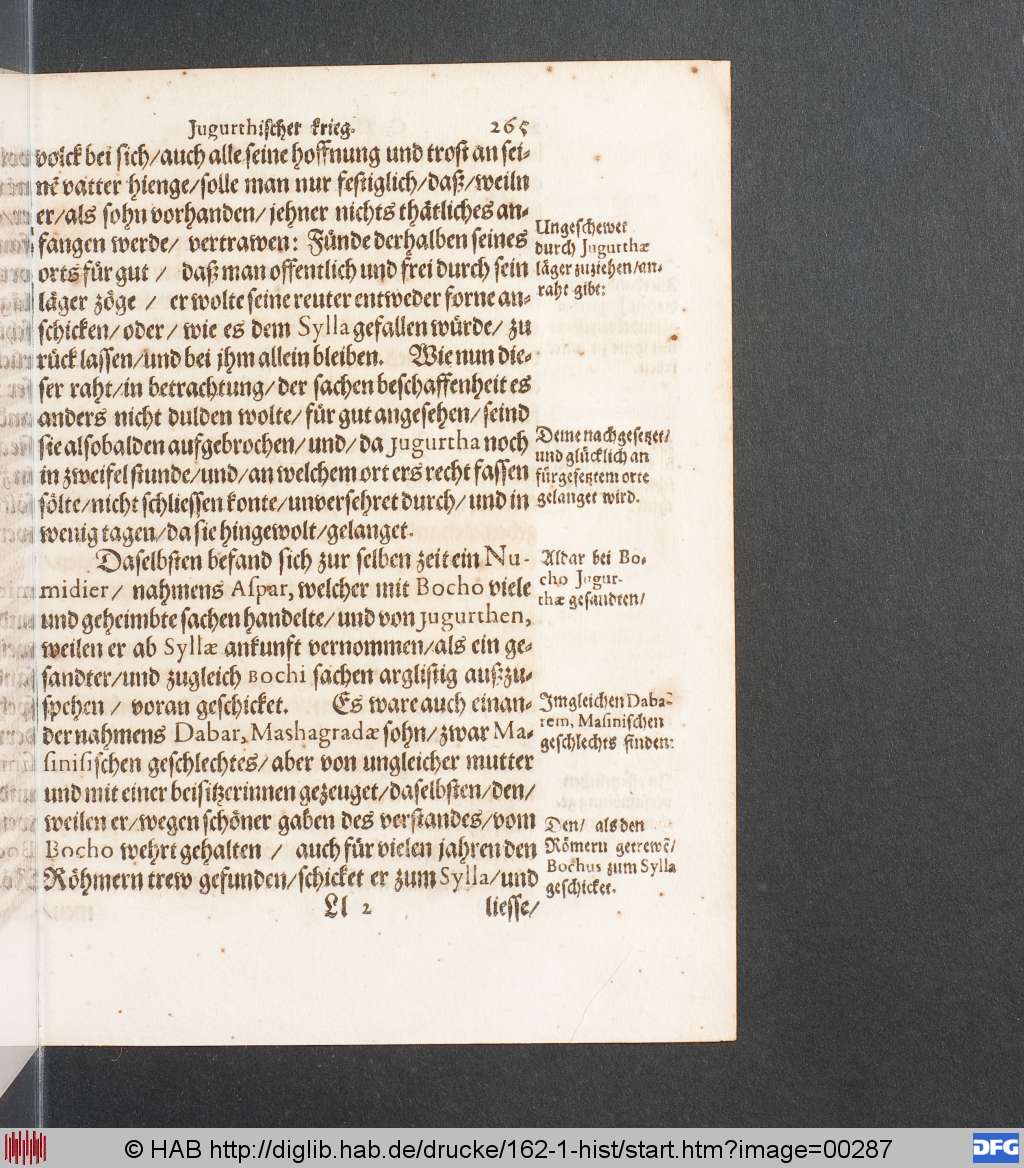 Jugurthischer krieg. 265
volck bei sich/auch alle seine hoffnung und trost an sei-
nē vatter hienge/solle man nur festiglich/daß/weiln
er/als sohn vorhanden/jehner nichts thätliches an-
fangen werde/ vertrawen: Fünde derhalben seines
orts für gut / daß man offentlich und frei durch sein
läger zöge / er wolte seine reuter entweder forne an-
schicken/oder/ wie es dem Sylla gefallen würde/ zu
rück lassen/und bei jhm allein bleiben. Wie nun die-
ser raht/in betrachtung/der sachen beschaffenheit es
anders nicht dulden wolte/ für gut angesehen/seind
sie alsobalden aufgebrochen/und/da Jugurtha noch
in zweifel stunde/und/an welchem ort ers recht fassen
sölte/nicht schliessen konte/unversehret durch/und in
wenig tagen/da sie hingewolt/gelanget.
Daselbsten befand sich zur selben zeit ein Nu-
midier/ nahmens Aspar, welcher mit Bocho viele
und geheimbte sachen handelte/und von Jugurthen,
weilen er ab Syllæ ankunft vernommen/als ein ge-
sandter/und zugleich Bochi sachen arglistig außzu-
spehen / voran geschicket. Es ware auch ein an-
der nahmens Dabar, Mashagradæ sohn/zwar Ma-
sinisischen geschlechtes/aber von ungleicher mutter
und mit einer beisitzerinnen gezeuget/daselbsten/den/
weilen er/wegen schöner gaben des verstandes/vom
Bocho wehrt gehalten / auch für vielen jahren den
Röhmern trew gefunden/schicket er zum Sylla/und
Ll 2 liesse/
Ungeschewet
durch Jugurthæ
läger zuziehen/an-
raht gibt:
Deme nachgesetzet/
und glücklich an
fürgesetztem orte
gelanget wird.
Aldar bei Bo-
cho Jugur-
thæ gesandten/
Jmgleichen Daba-
rem, Masinischen
geschlechts finden:
Den/ als den
Römern getrewē/
Bochus zum Sylla
geschicket.
© HAB http://diglib.hab.de/drucke/162-1-hist/start.htm?image=00287
DFG